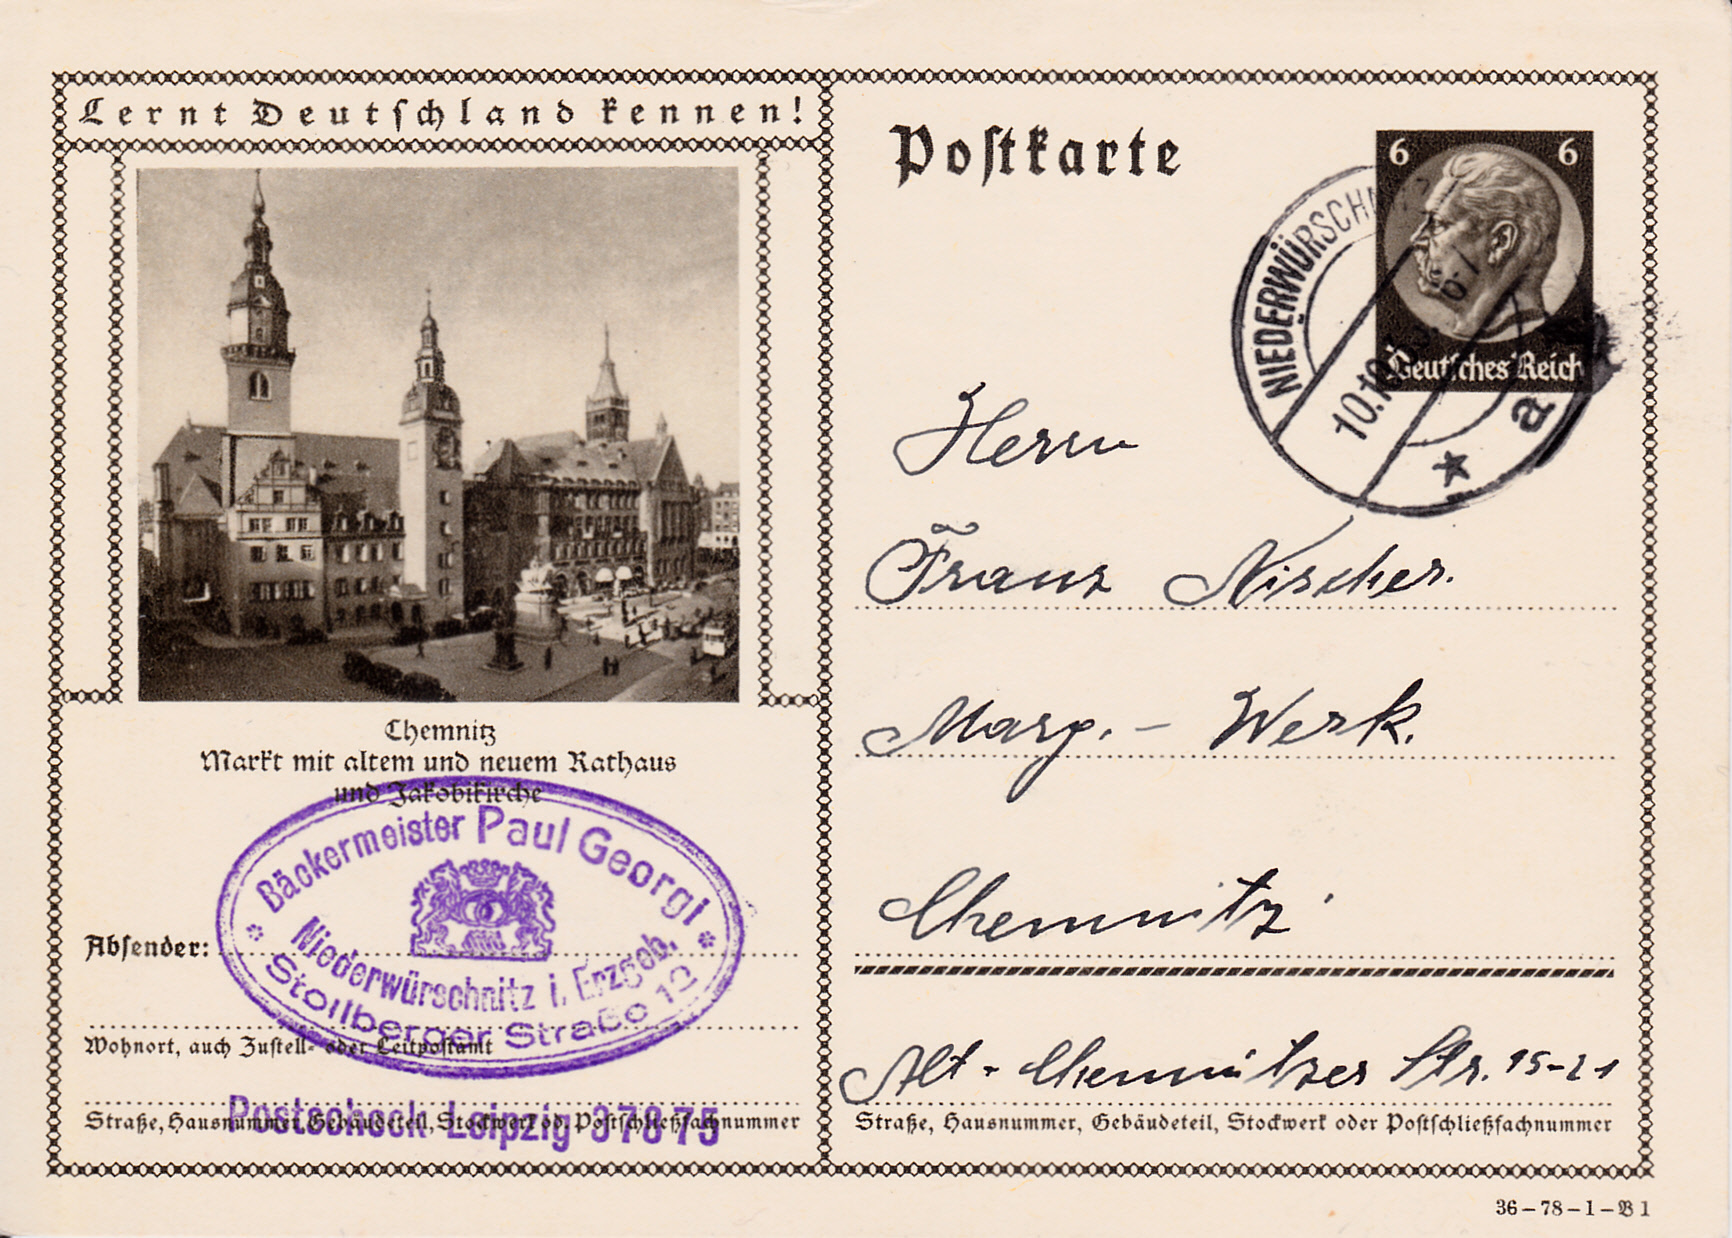 Lernt Deutschland kennen!
Chemnitz
Markt mit altem und neuem Rathaus
und Jakobikirche
Bäckermeister Paul Georgi
Niederwürschnitz i. Erzgeb.
Stollberger Straße 12
Absender:
Wohnort, auch Zustell- oder Leitpostamt
Postscheck Leipzig 37875
Straße, Hausnummer, Gebäudeteil, Stockwerk od. Postschließfachnummer
Postkarte
6 6
Deutsches Reich
NIEDERWÜRSCHN
10.10.
a
Herrn
Franz Nischer.
Marg. - Werk.
Chemnitz
Alt - Chemnitzer Str. 15-21
Straße, Hausnummer, Gebäudeteil, Stockwerk oder Postschließfachnummer
36-78-1-B1